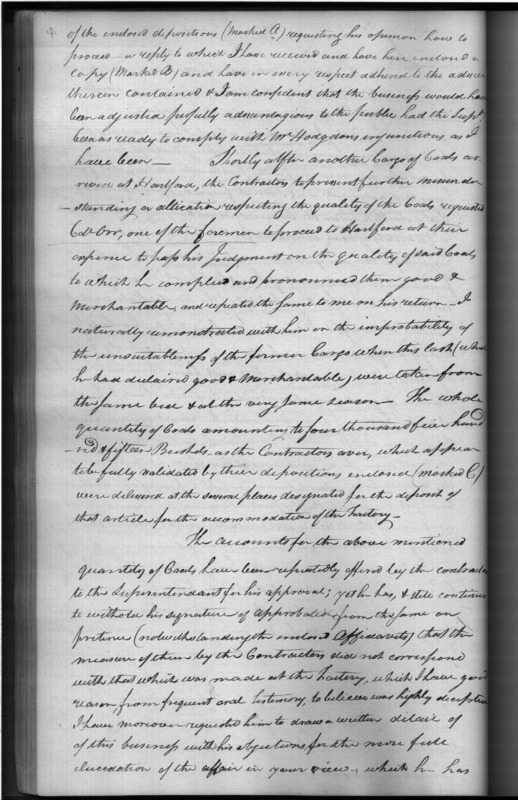 4
of the enclosed depositions (marked A) requesting his opinion how to
proceed — a reply to which I have received and have here enclosed a
copy (Marked B) and have in every respect adhered to the advice
therein contained & I am confident that the business would have
been adjusted perfectly advantagious to the public had the Supt.
been as ready to comply with Mr Hodgdons injunctions as I
have been — Shortly after another Cargo of Coals ar
rived at Hartford, the Contractors to prevent further misunder
-standing or altercation respecting the quality of the Coals requested
Orr, one of the foremen to proceed to Hartford at their
expence to pass his Judgment on the quality of said Coals
to which he complied and pronounced them good &
Merchantable, and repeated the same to me on his return — I
naturally remonstrated with him on the improbability of
the unsuitableness of the former Cargo when this last (which
he had declaired good & Merchandable) were taken from
the same bed & at the very same season — The whole
quantity of Coals amounting to four thousand five hund
-red & fifteen Bushels as the Contractors aver, which appear
to be fully validated by their depositions enclosed (marked C)
were delivered at the several places designated for the deposit of
that article for the accommodation of the Factory —
The accounts for the above mentioned
quantity of Coals have been repeatedly offered by the contractors
to the Superintendant for his approval; yet he has, & still continues
to withold his signature of Approbation from the same on
pretence (notwithstanding the enclosed Affidavits) that the
measure of them by the Contractors did not correspond
with that which was made at the Factory, which I have good
reason from frequent oral testimony, to believe was highly deceptive
I have moreover requested him to draw a written detail of
of this business with his objections for the more full
elucidation of the affair in your view, which he has